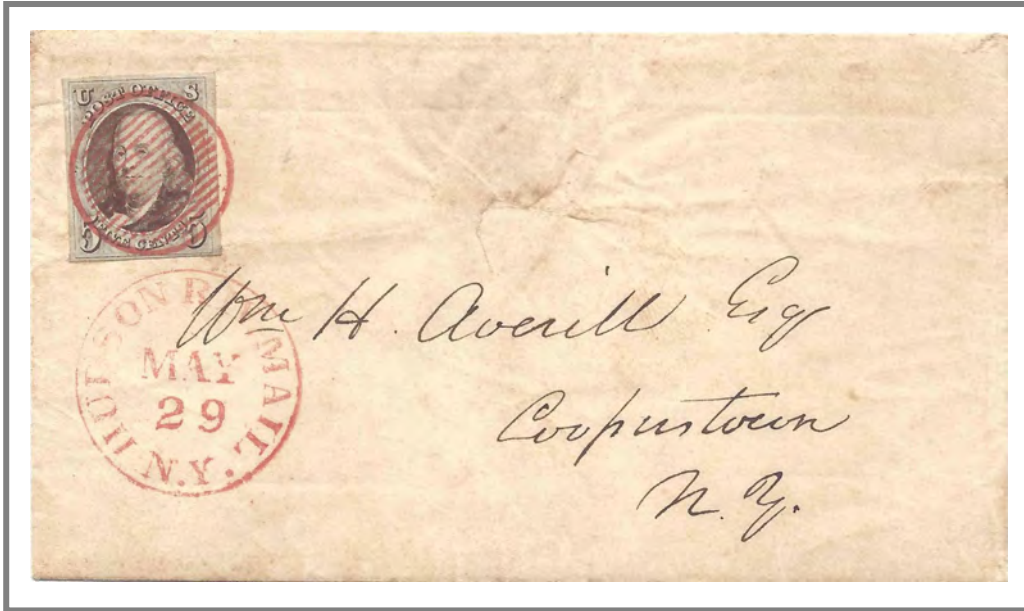 U S
POST OFFICE
5 FIVE CENTS 5
HUDSON RIV. MAIL
MAY
29
N.Y.
Wm H. Averill Esq
Cooperstown
N.Y.